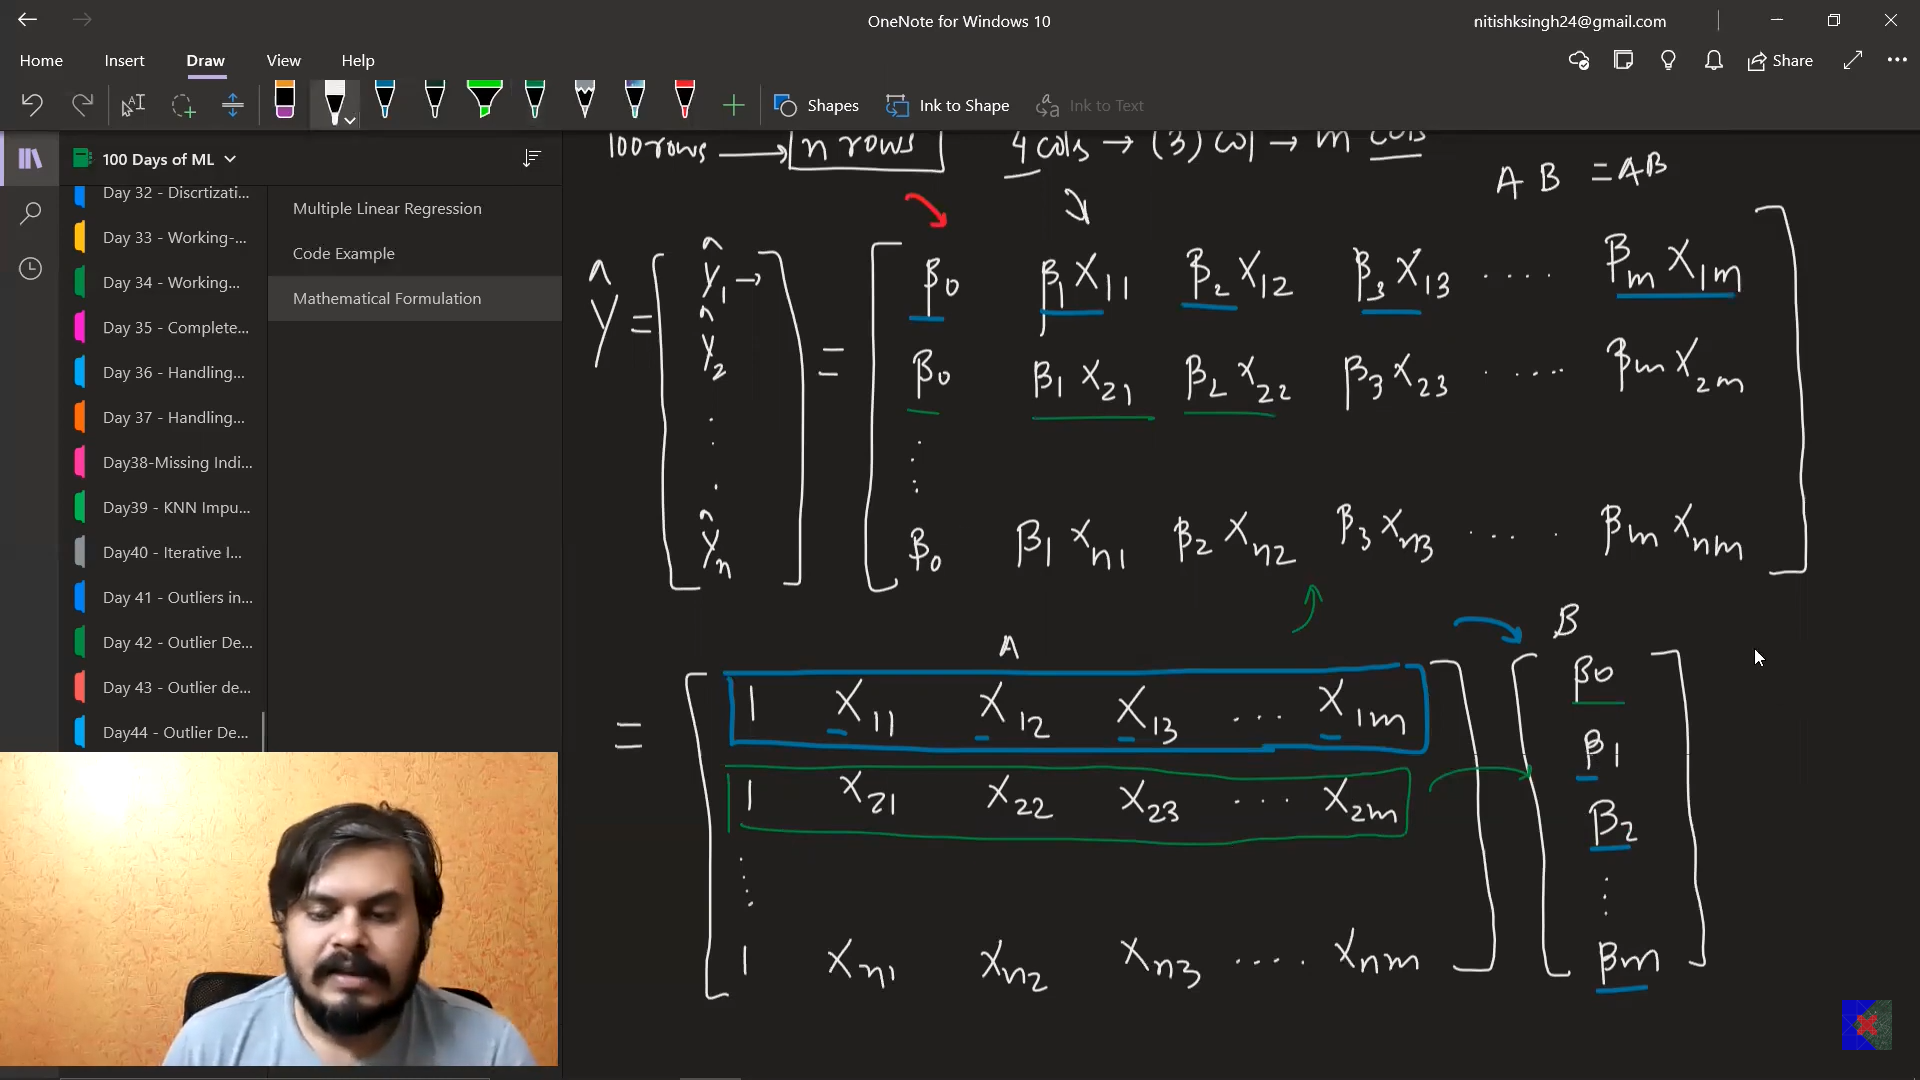 OneNote for Windows 10
nitishksingh24@gmail.com
Home Insert Draw View Help
Share
Shapes Ink to Shape Ink to Text
100 Days of ML
Day 32 - Discrtizati...
Day 33 - Working-...
Day 34 - Working...
Day 35 - Complete...
Day 36 - Handling...
Day 37 - Handling...
Day38-Missing Indi...
Day39 - KNN Impu...
Day40 - Iterative I...
Day 41 - Outliers in...
Day 42 - Outlier De...
Day 43 - Outlier de...
Day44 - Outlier De...
Multiple Linear Regression
Code Example
Mathematical Formulation
100 rows → n rows 4 cols → (3) col → m cols
A B = AB
Ŷ = [ ŷ1 → = [ β0 β1 X11 β2 X12 β3 X13 ..... βm X1m ]
ŷ2 β0 β1 X21 β2 X22 β3 X23 ..... βm X2m
ŷn ] β0 β1 Xn1 β2 Xn2 β3 Xn3 .... βm Xnm
A B
= [ 1 X11 X12 X13 ... X1m ] [ β0 ]
1 X21 X22 X23 ... X2m β1
β2
1 Xn1 Xn2 Xn3 .... Xnm βm